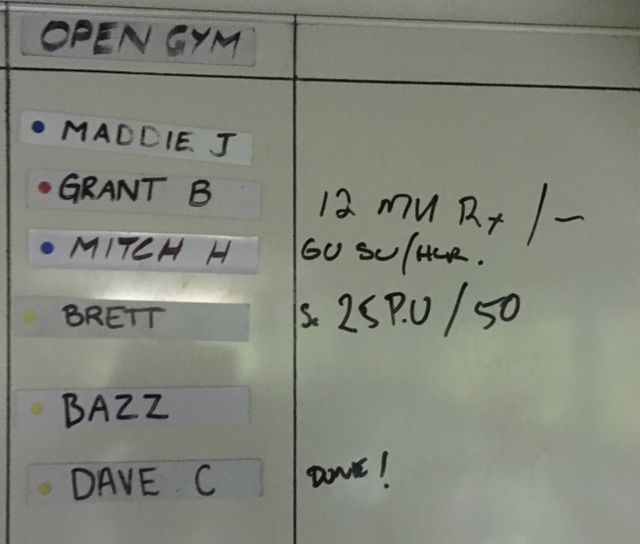 OPEN GYM
MADDIE J
GRANT B 12 MU Rx / -
MITCH H GU SU/HCR.
BRETT Sc 25 P.U / 50
BAZZ
DAVE C DONE!